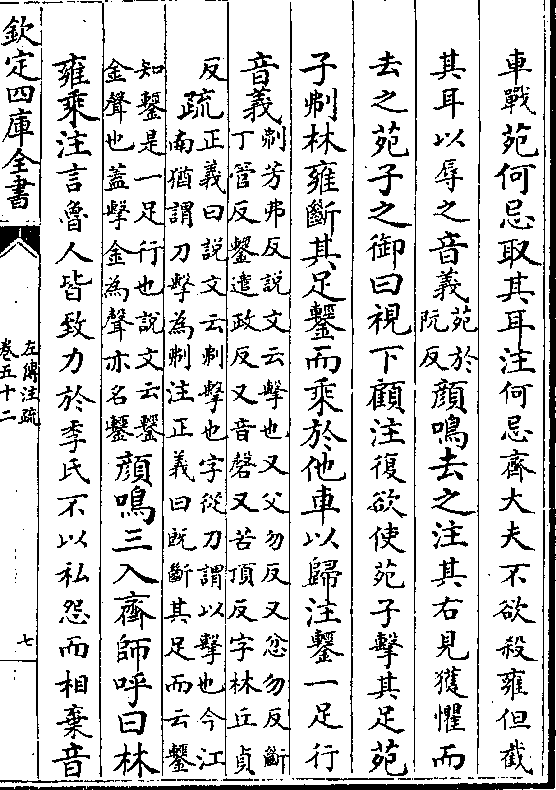 車戰苑何忌取其耳注何忌齊大夫不欲殺雍但截
其耳以辱之音義苑於阮反顔鳴去之注其右見獲懼而
去之苑子之御曰視下顧注復欲使苑子擊其足苑
子刜林雍斷其足鑋而乘於他車以歸注鑋一足行
音義刜芳弗反說文云擊也又父勿反又忿勿反斷
丁管反鑋遣政反又音磬又苦頂反字林丘貞
反疏正義曰說文云刜擊也字從刀謂以擊也今江
南猶謂刀擊為刜注正義曰既斷其足而云鑋
知鑋是一足行也說文云鑋
金聲也蓋擊金為聲亦名鑋顔鳴三入齊師呼曰林
雍乘注言魯人皆致力於季氏不以私怨而相棄音
欽定四庫全書
左傳注疏
卷五十二
七